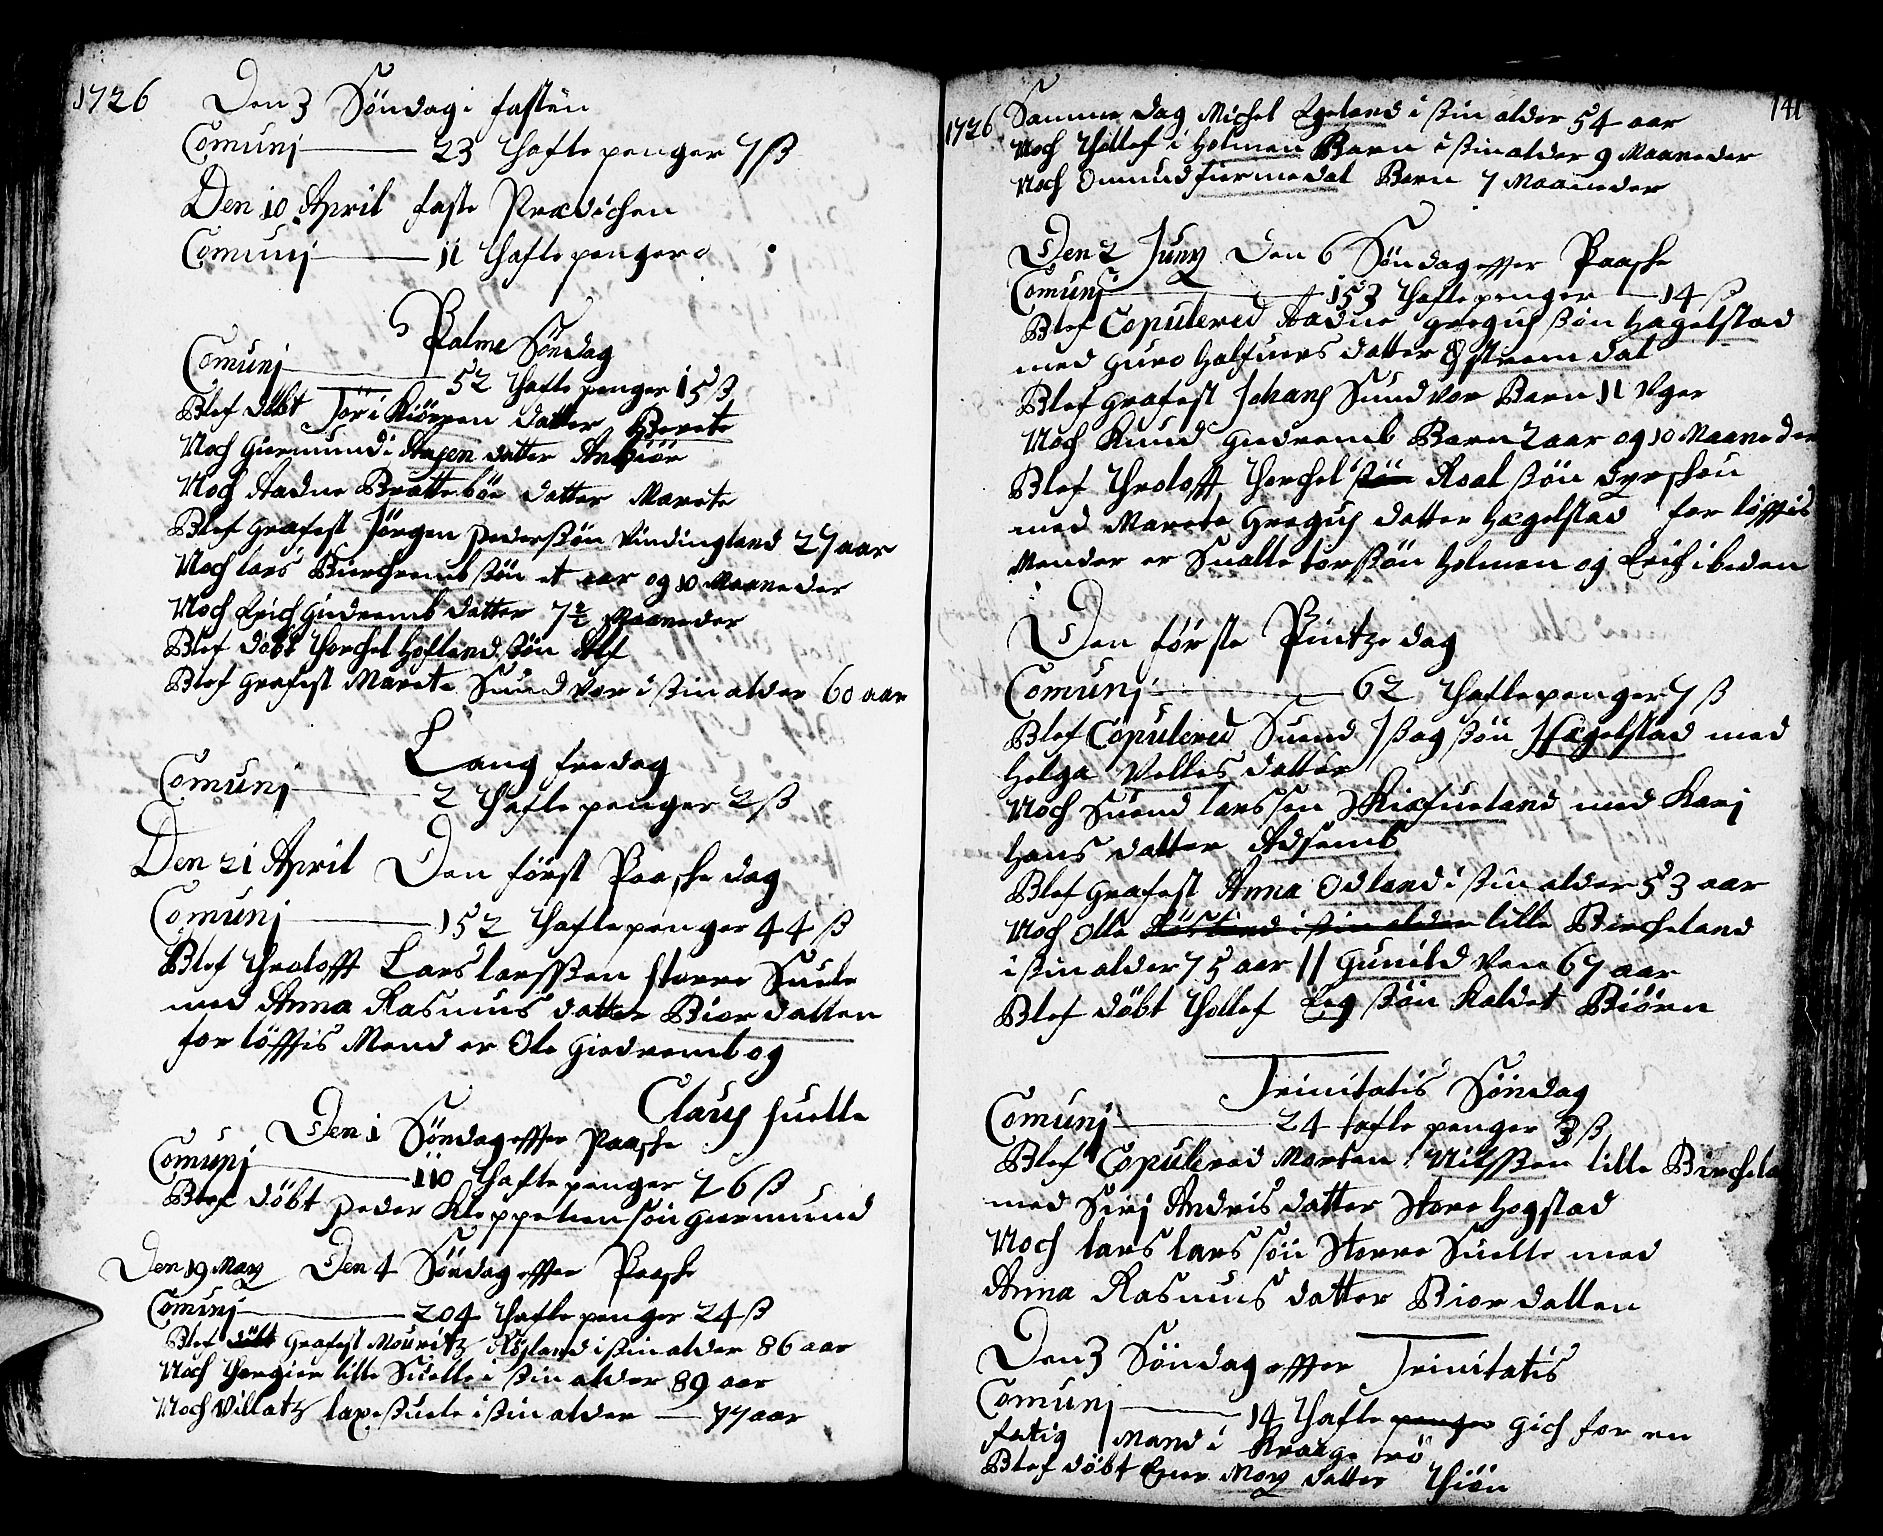 1726 Den 3 Söndag i fasten
Comunj 23 Thafle penger 7 ß
Den 10 April faste Prædichen
Comunj 11 Thafle penger 0
Palme Söndag
Comunj 52 Thafle penger 15 ß
Blef döbt Tör i Kiörren datter Berete
Noch Giermund i Aasen datter Anbiör
Noch Aadne Bratteböe datter Marete
Blef Grafest Jörgen Pederßön Vindingland 27 aar
Noch Lars Birchremb ßön et aar og 10 Maaneder
Noch Erich Giedremb datter 7½ Maaneder
Blef döbt Thorchel Hofland ßön Alf
Blef Grafest Marete Sundvor i ßin alder 60 aar
Lang fredag
Comunj 2 Thafle penger 2 ß
Den 21 April Den först Paaske dag
Comunj 152 Thafle penger 44 ß
Blef Throlofft Lars larsßen storre Suele
med Anna Rasmus datter Biordallen
forlöffis Mend er Ole Giedremb og
Claus Suelle
Den 1 Söndag effter Paaske
Comunj 110 Thafle penger 26 ß
Blef döbt Peder Kleppelien sön Giermund
Den 19 May Den 4 Söndag effter Paaske
Comunj 204 Thafle penger 24 ß
Blef döbt Grafest Mouritz Rösland i ßin alder 86 aar
Noch Thorgier lille Suelle i ßin alder 89 aar
Noch Villatz laxeßuele i ßin alder 77 aar
141
1726 Samme dag Michel Egeland i ßin alder 54 aar
Noch Thollef i Holmen Barn i ßin alder 9 Maaneder
Noch Omund furmedal Barn 7 Maaneder
Den 2 Juny Den 6 Söndag effter Paaske
Comunj 153 Thafle penger 14 ß
Blef Copulered Aadne Gregus ßön Hægelstad
med Guro Halfuors datter Østremdal
Blef Grafest Johans Sundvor Barn 11 Uger
Noch Knud Giedremb Barn 2 aar og 10 Maaneder
Blef Throlofft Thorchel ßön Roal ßön Eyeshou
med Marete Gregus datter Hægelstad forlöffis
Mender er Sualle torßön Holmen og Erich ibeden
Den förste Pintze dag
Comunj 62 Thafle penger 7 ß
Blef Copulered Suend Jßag ßön Hægelstad med
Helga Velles datter
Noch Suend larssen Skiæfueland med Karj
Hans datter Adsemb
Blef Grafest Anna Odland i ßin alder 53 aar
Noch Olle Röstend i ßin alder lille Bircheland
i ßin alder 75 aar // Gunild Vere 67 aar
Blef döbt Thollef Eeg ßön Kaldet Biörn
Trinitatis Söndag
Comunj 24 tafle penger 3 ß
Blef Copulered Morten Nilsßen lille Birchela
med Sirj Andris datter Store Hogstad
Noch lars lars sön Storre Suelle med
Anna Rasmus datter Biordallen
Den 3 Söndag effter Trinitatis
Comunj 14 Thafle penger gich for en
fatig Mand i Krage trö
Blef döbt Ener Moy datter Thiön